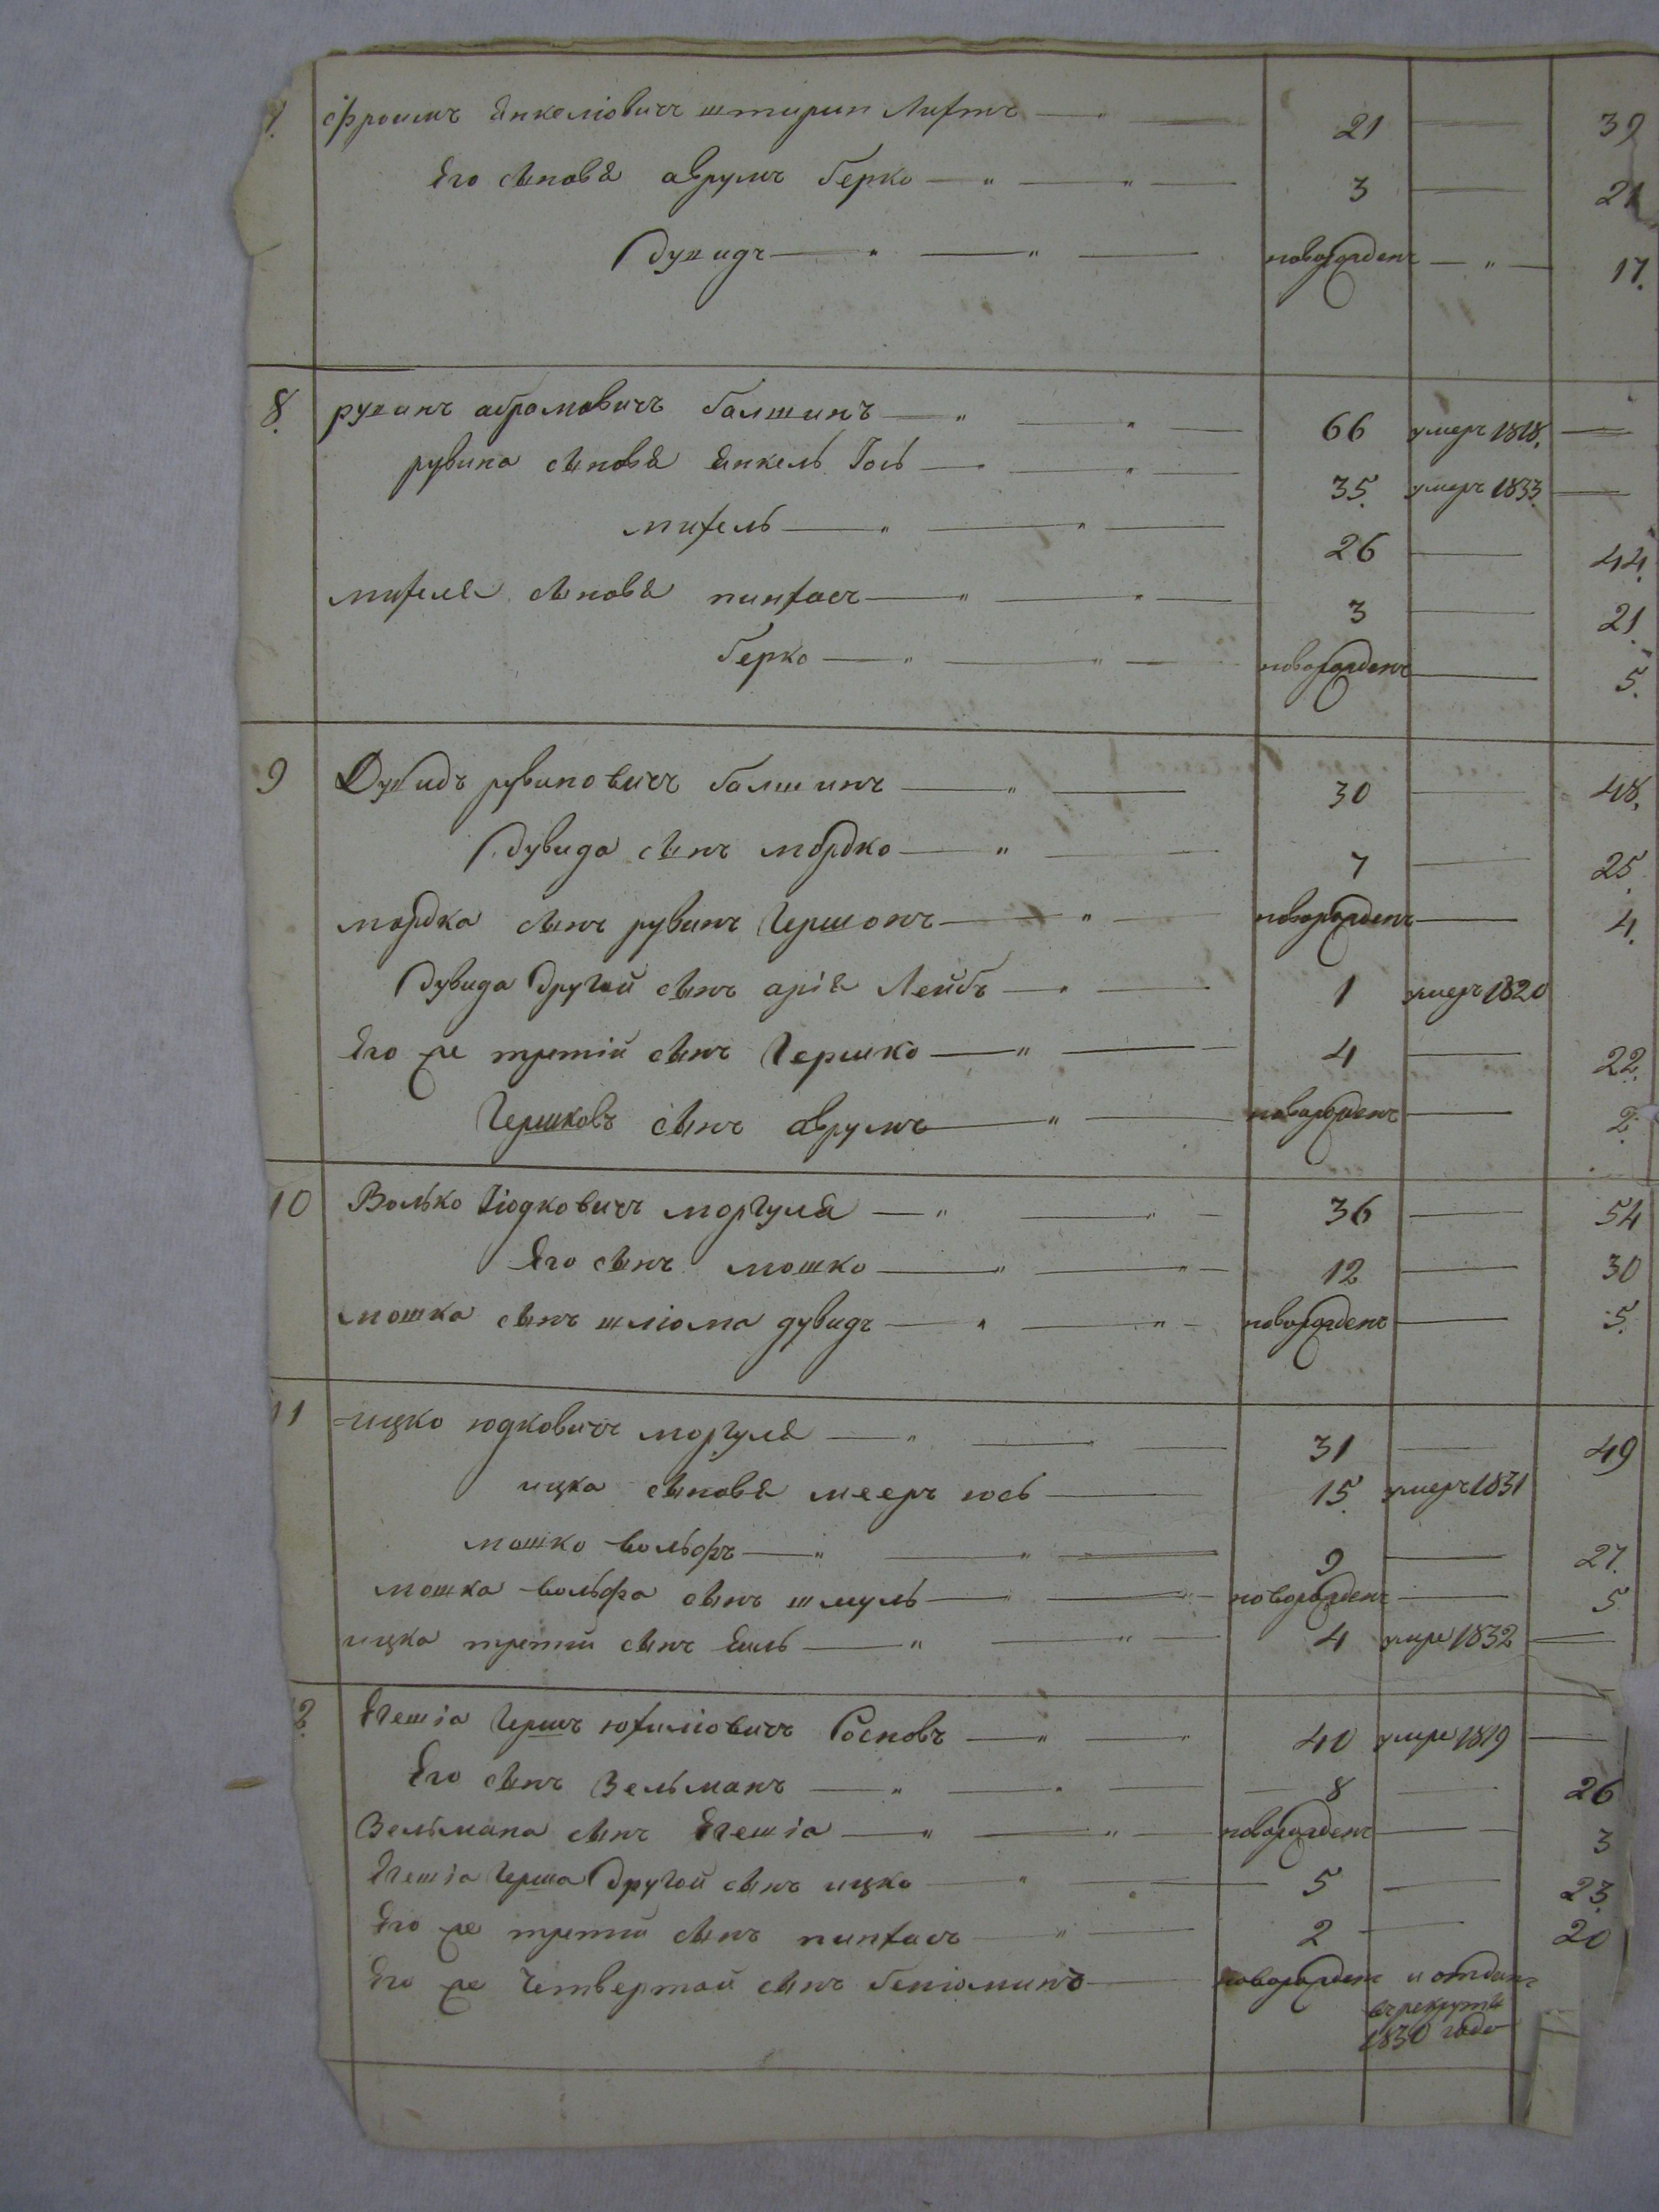 7. Фроимъ Янкеліовичъ штирин Лихтъ 21 39
Его сыновя аврумъ Берко 3 21
дувидъ новорожденъ 17.
8. рувинъ абрамовичъ балшинъ 66 умеръ 1818.
рувина сыновя янкель Іось 35. умеръ 1833
михель 26 44.
михеля сыновя пинхасъ 3 21.
берко новорожденъ 5.
9 Дувидъ рувиновичъ балшинъ 30 48.
дувида сынъ мордко 7 25.
мордка сынъ рувинъ Гершонъ новорожденъ 4.
дувида другой сынъ аріа Лейбъ 1 умеръ 1820
Его же третій сынъ Гершко 4 22.
Гершковъ сынъ аврумъ новорожденъ 2.
10 Волько Іюдковичъ моргуля 36 54
Его сынъ мошко 12 30
мошка сынъ шліома дувидъ новорожденъ 5.
11 ицко юдковичъ моргуля 31 49
ицка сыновя мееръ юсь 15. умеръ 1831
мошко вольфъ 9 27.
мошка вольфа сынъ шмуль новорожденъ 5
ицка третій сынъ Еиль 4 умре 1832
2. Егешіа Гершъ юхиліовичъ 40 умре 1819
Его сынъ Зельманъ 8 26
Зельмана сынъ Егешіа новорожденъ 3
Егешіа Герша другой сынъ ицко 5 23.
Его же третій сынъ пинхасъ 2 20
Его же четвертой сынъ беніоминъ новорожденъ и отданъ
въ рекруты
1830 года